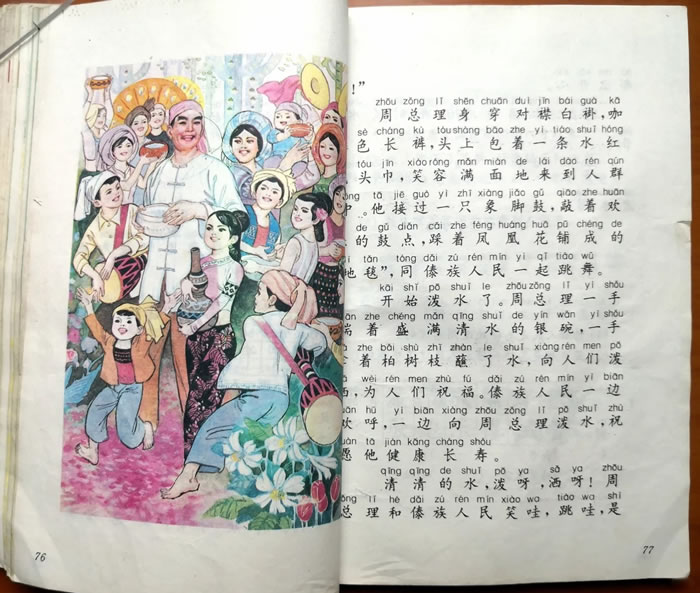 ！”
zhōu zǒng lǐ shēn chuān duì jīn bái guà kā
周总理身穿对襟白褂，咖
sè cháng kù tóu shàng bāo zhe yì tiáo shuǐ hóng
色长裤，头上包着一条水红
tóu jīn xiào róng mǎn miàn de lái dào rén qún
头巾，笑容满面地来到人群
tā jiē guò yì zhī xiàng jiǎo gǔ qiāo zhe huān
中。他接过一只象脚鼓，敲着欢
de gǔ diǎn cǎi zhe fèng huáng huā pū chéng de
的鼓点，踩着凤凰花铺成的
tǎn tóng dǎi zú rén mín yì qǐ tiào wǔ
地毯”，同傣族人民一起跳舞。
kāi shǐ pō shuǐ le zhōu zǒng lǐ yì shǒu
开始泼水了。周总理一手
zhe chéng mǎn qīng shuǐ de yín wǎn yì shǒu
着盛满清水的银碗，一手
zhe bǎi shù zhī zhàn le shuǐ xiàng rén men pō
着柏树枝蘸了水，向人们泼
wèi rén men zhù fú dǎi zú rén mín yì biān
，为人们祝福。傣族人民一边
hū yì biān xiàng zhōu zǒng lǐ pō shuǐ zhù
欢呼，一边向周总理泼水，祝
tā jiàn kāng cháng shòu
愿他健康长寿。
qīng qīng de shuǐ pō ya sǎ ya zhōu
清清的水，泼呀，洒呀！周
lǐ hé dǎi zú rén mín xiào wa tiào wa shì
总理和傣族人民笑哇，跳哇，是
76
77